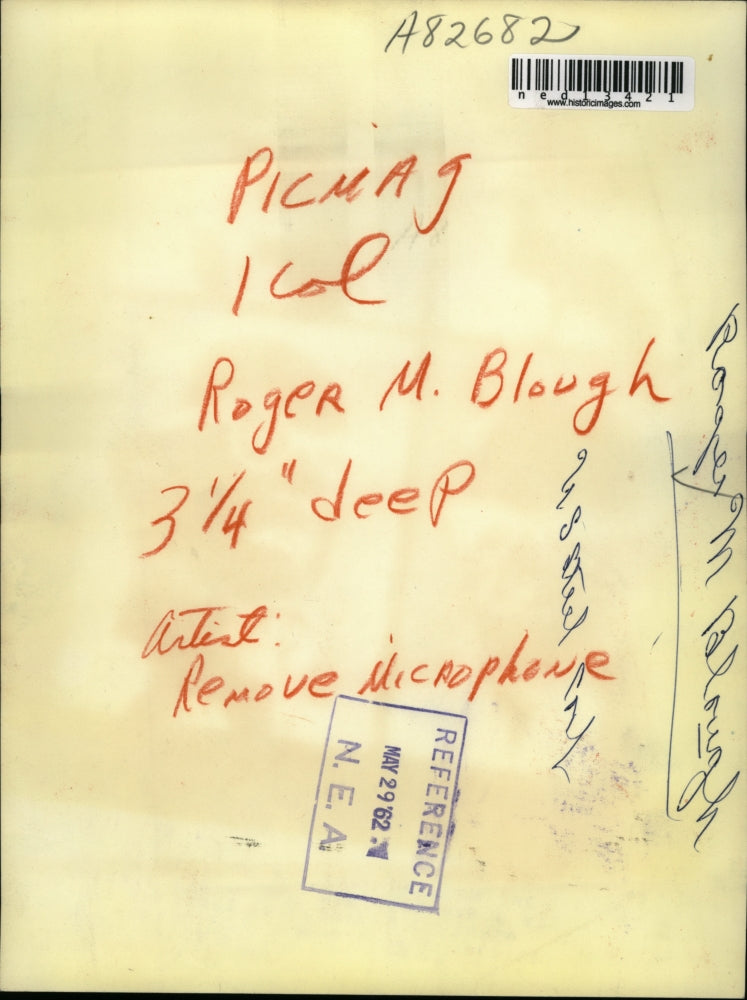 A82682
ned13421
www.historicimages.com
PICMAG
1 col
Roger M. Blough
3 1/4" deep
Artist:
Remove Microphone
Roger M Blough
US Steel
REFERENCE
MAY 29 '62
N. E. A.